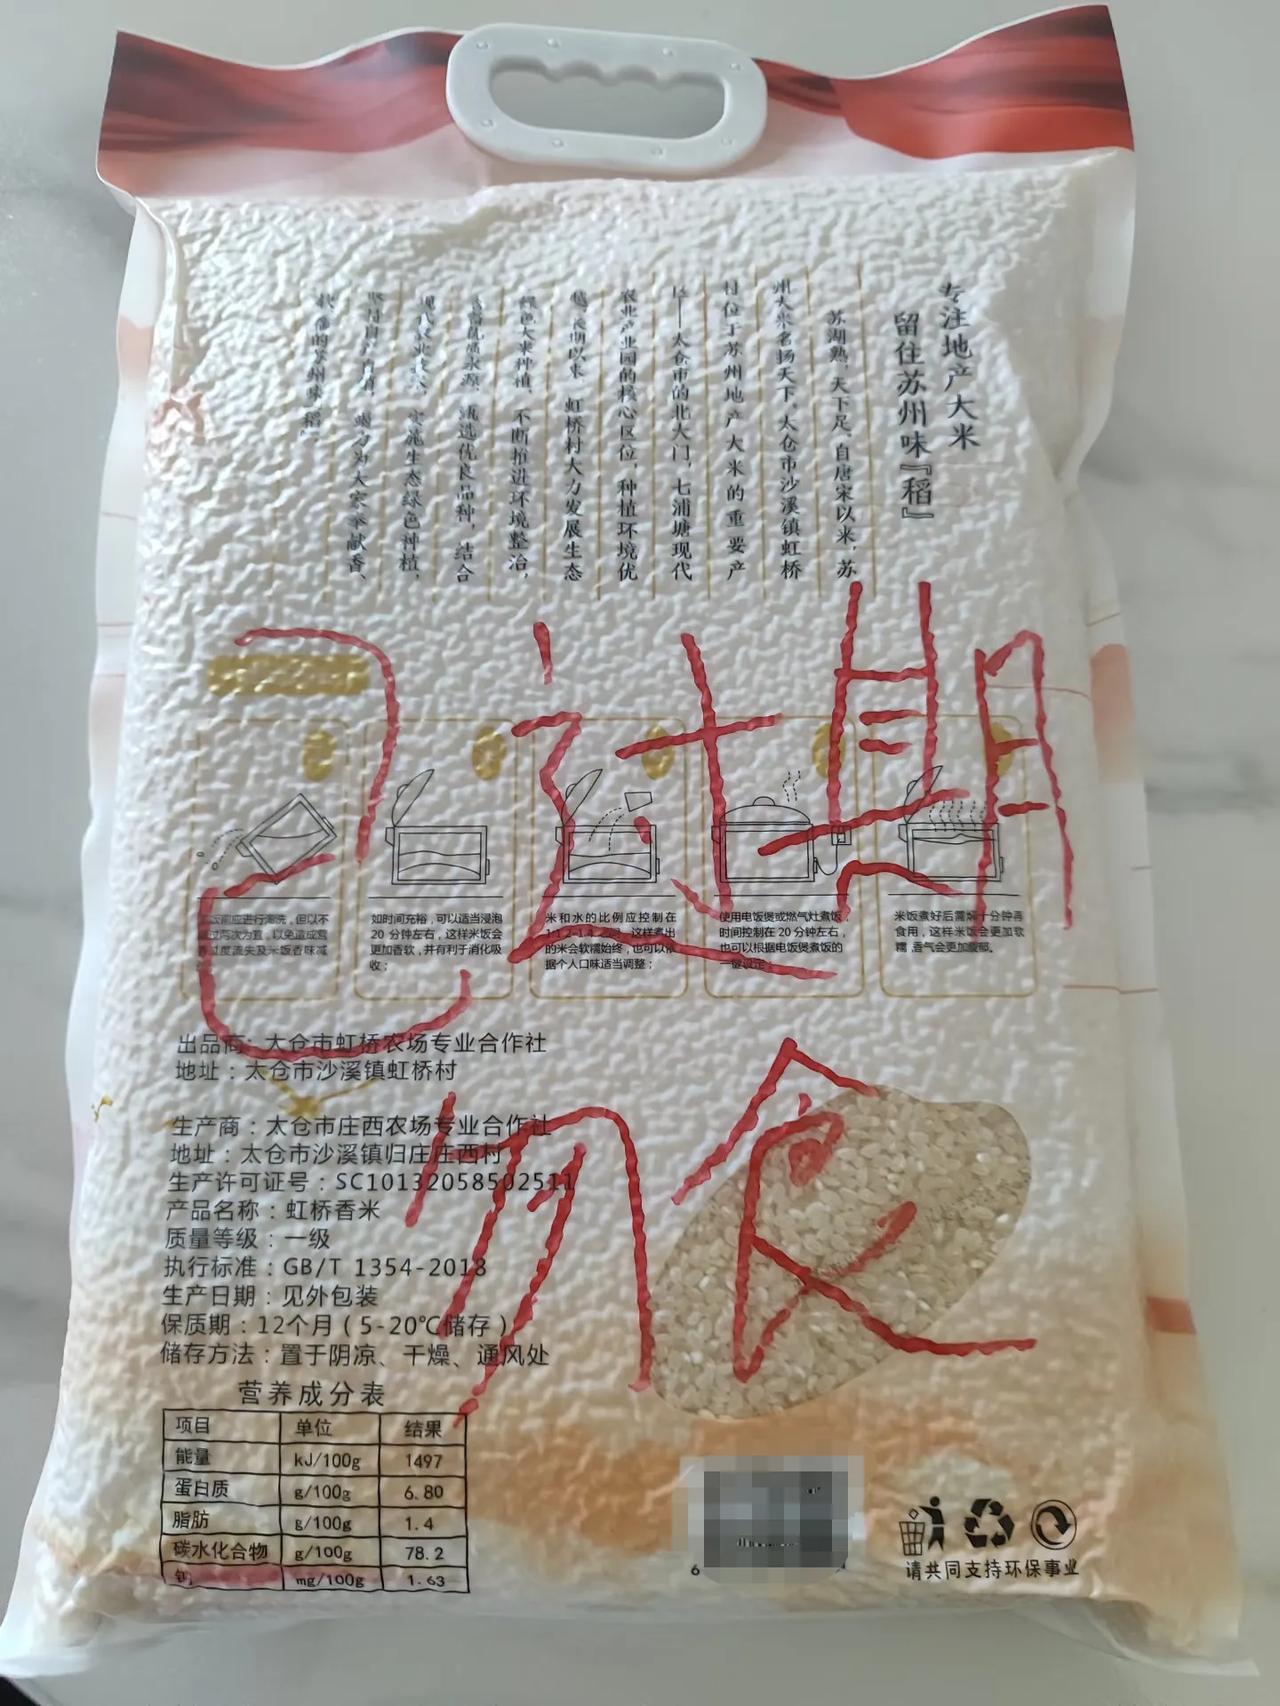 专注地产大米
留住苏州味『稻』
苏湖熟，天下足。自唐宋以来，苏
州大米名扬天下。太仓市沙溪镇虹桥
村位于苏州地产大米的重要产
区——太仓市的北大门，七浦塘现代
农业产业园的核心区位，种植环境优
越。长期以来，虹桥村大力发展生态
绿色大米种植，不断推进环境整治，
优质水源，甄选优良品种，结合
现代农业技术，实施生态绿色种植，
竭力为大家奉献香、
软糯的苏州味『稻』
已过期
勿食
进行淘洗，但以不
超过两次为宜，以免造成营
养过度流失及米饭香味减
如时间充裕，可以适当浸泡
20 分钟左右，这样米饭会
更加香软，并有利于消化吸
收；
米和水的比例应控制在
1:1.2-1.4 之间，这样煮出
的米会软糯始终，也可以依
据个人口味适当调整；
使用电饭煲或燃气灶煮饭，
时间控制在 20 分钟左右，
也可以根据电饭煲煮饭的
一键设定；
米饭煮好后需焖十分钟再
食用，这样米饭会更加软
糯，香气会更加馥郁。
出品商：太仓市虹桥农场专业合作社
地址：太仓市沙溪镇虹桥村
生产商：太仓市庄西农场专业合作社
地址：太仓市沙溪镇归庄庄西村
生产许可证号：SC10132058502511
产品名称：虹桥香米
质量等级：一级
执行标准：GB/T 1354-2018
生产日期：见外包装
保质期：12个月（5-20℃储存）
储存方法：置于阴凉、干燥、通风处
营养成分表
项目 单位 结果
能量 kJ/100g 1497
蛋白质 g/100g 6.80
脂肪 g/100g 1.4
碳水化合物 g/100g 78.2
钠 mg/100g 1.63
6
请共同支持环保事业